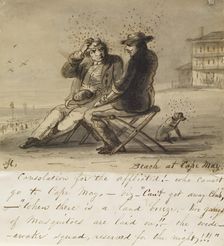 Beach at Cape May.
Consolation for the afflicted who cannot
go to Cape May — or "Can't get away Club,"
— "When there is a land breeze, the
of Mosquitoes are laid on, the
squad, reserved for the night,!!"